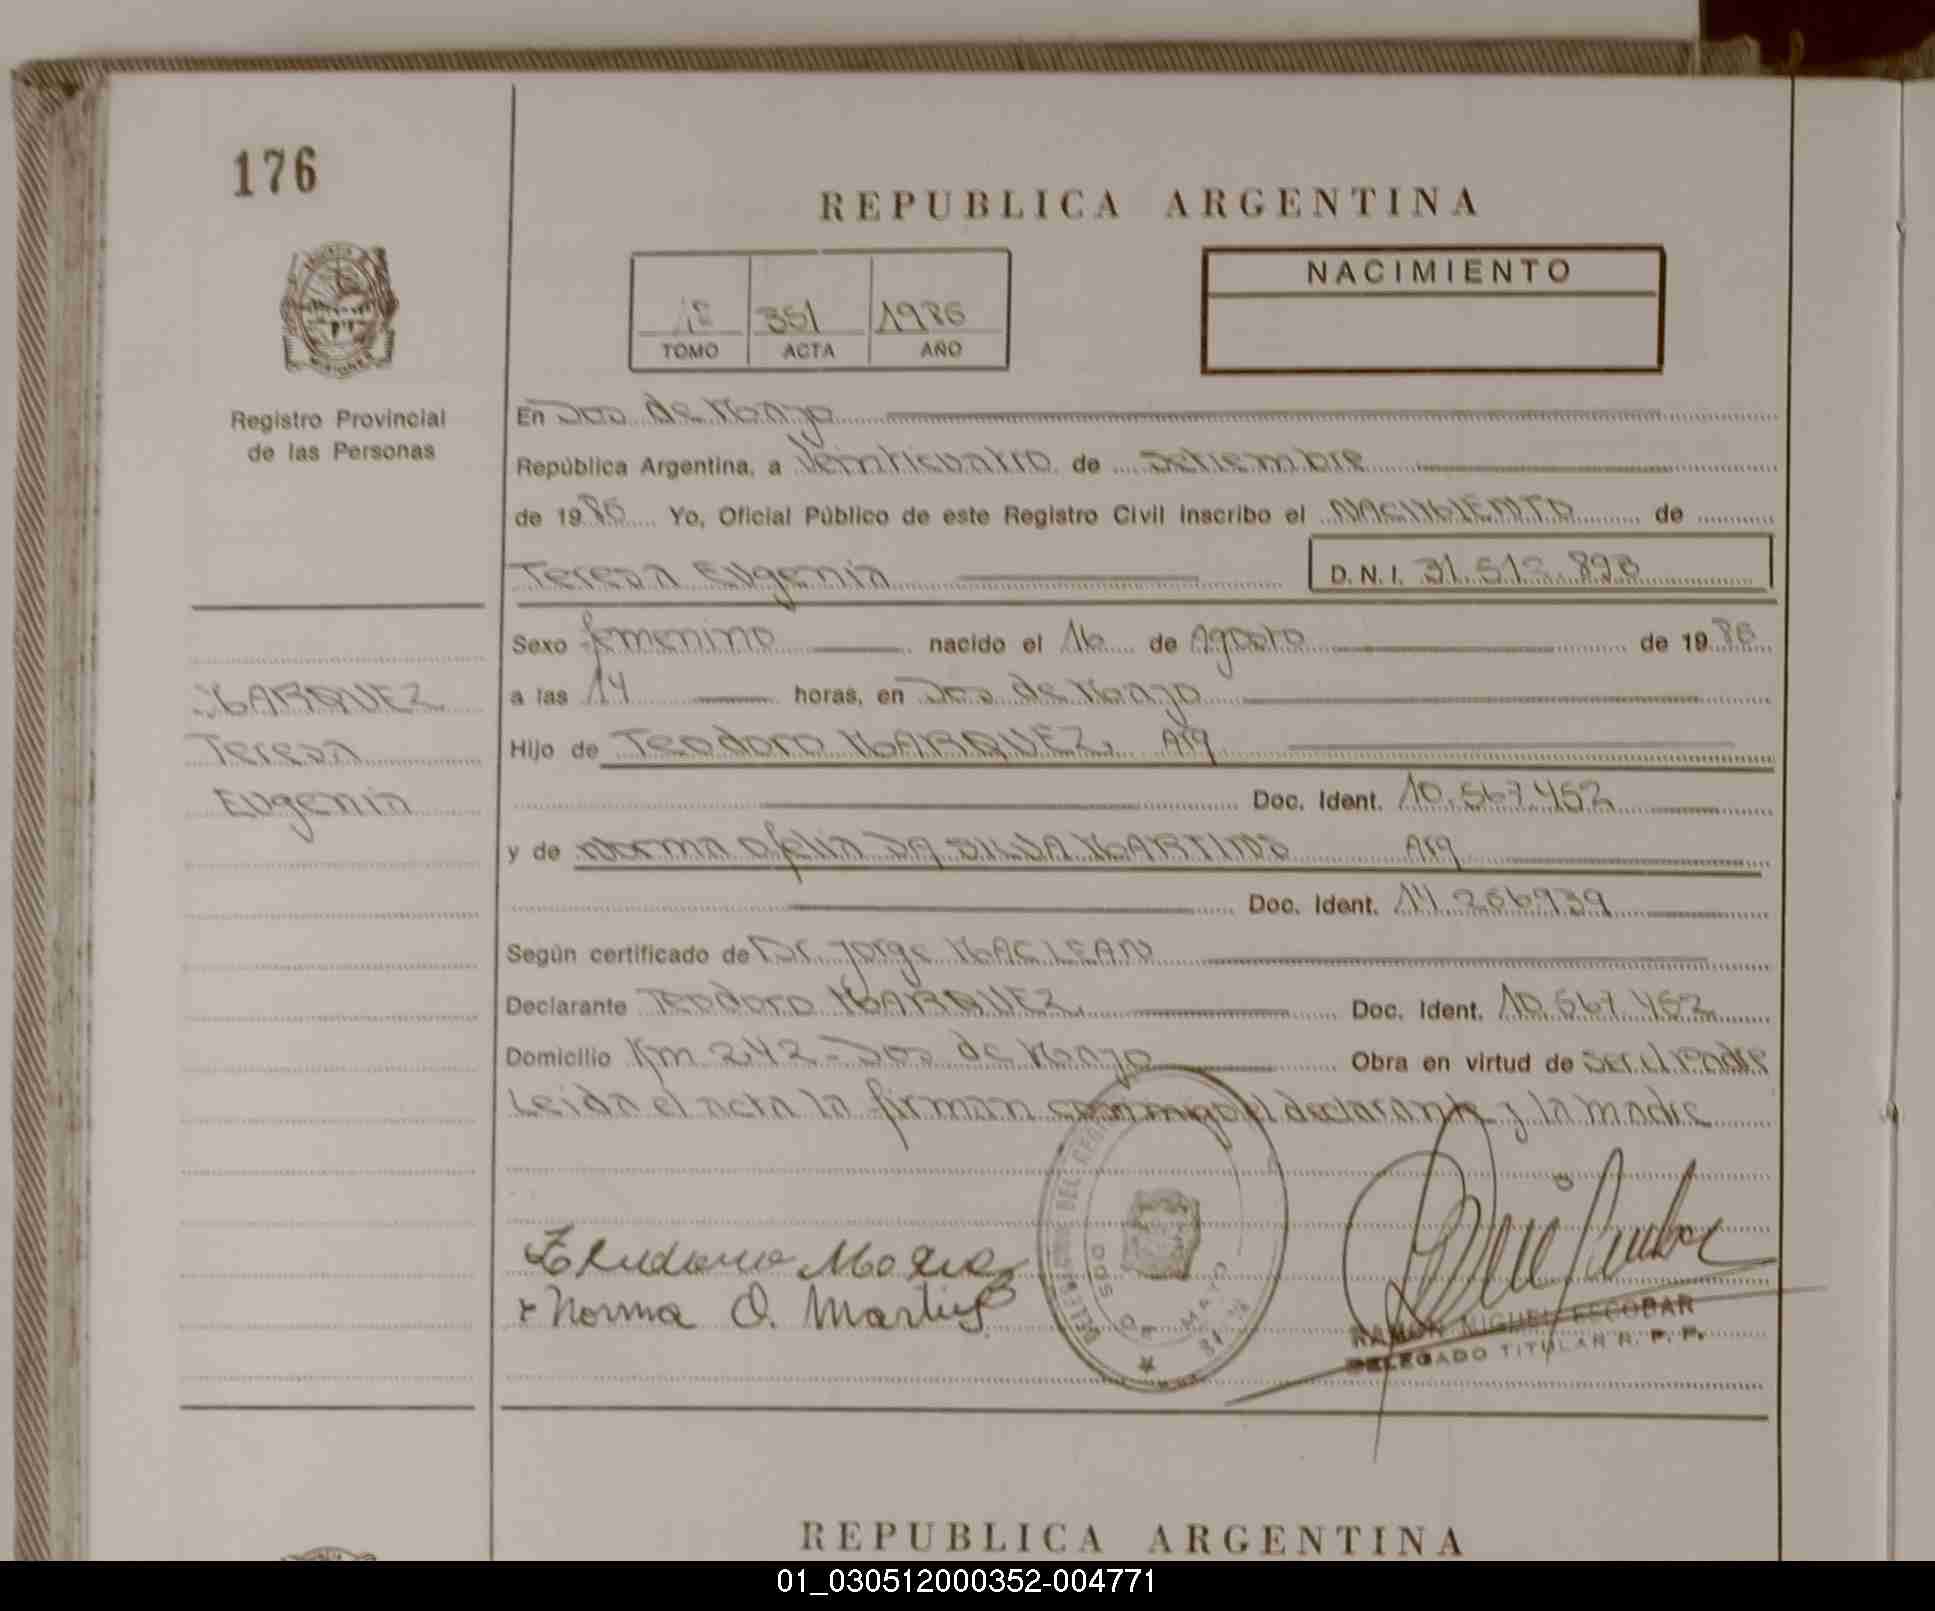 176
REPUBLICA ARGENTINA
NACIMIENTO
1º 351 1986
TOMO ACTA AÑO
Registro Provincial
de las Personas
En Dos de Mayo
República Argentina, a Veinticuatro de Setiembre
de 1986 Yo, Oficial Público de este Registro Civil inscribo el NACIMIENTO de
Teresa Eugenia D.N.I. 31.512.893
Sexo femenino nacido el 16 de Agosto de 1986
MARQUEZ
Teresa
Eugenia
a las 14 horas, en Dos de Mayo
Hijo de Teodoro MARQUEZ, Arg
Doc. Ident. 10.567.452
y de Norma Ofelia DA SILVA MARTINS Arg
Doc. Ident. 14.206939
Según certificado de Dr. Jorge MAC LEAN
Declarante Teodoro MARQUEZ, Doc. Ident. 10.567.452
Domicilio Km 242 - Dos de Mayo Obra en virtud de ser el Padre
Leida el acta la firman conmigo el declarante y la madre
DOS DE MAYO
Norma O. Martins
RAMON MIGUEL ESCOBAR
DELEGADO TITULAR R. P. P.
REPUBLICA ARGENTINA
01_030512000352-004771